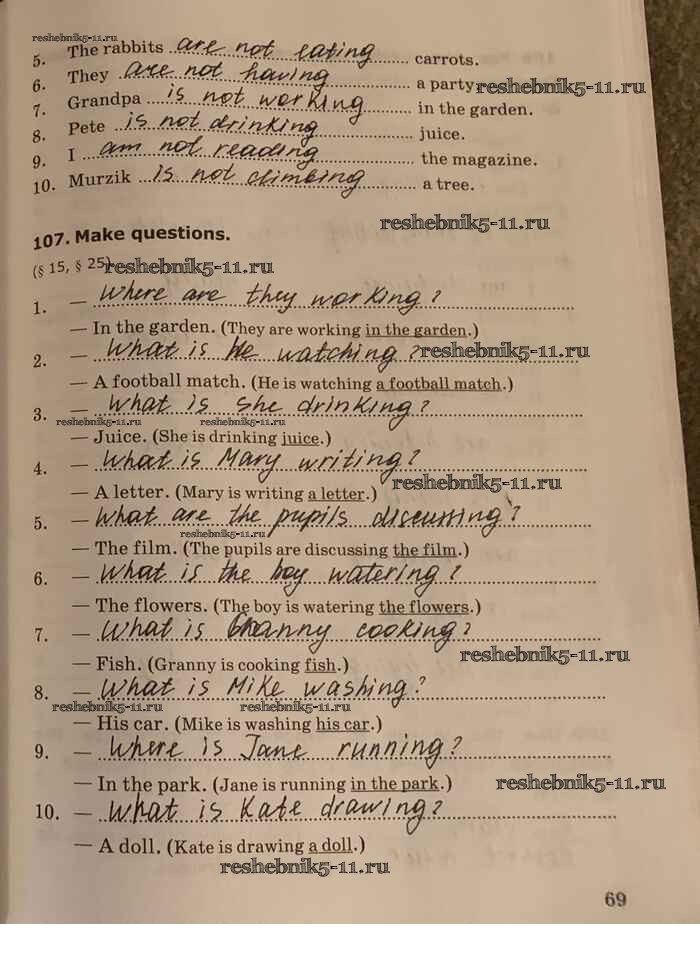 reshebnik5-11.ru
5. The rabbits are not eating carrots.
6. They are not having a party reshebnik5-11.ru
7. Grandpa is not working in the garden.
8. Pete is not drinking juice.
9. I am not reading the magazine.
10. Murzik is not climbing a tree.
reshebnik5-11.ru
107. Make questions.
(§ 15, § 25) reshebnik5-11.ru
1. — Where are they working?
— In the garden. (They are working in the garden.)
2. — What is he watching? reshebnik5-11.ru
— A football match. (He is watching a football match.)
3. — What is she drinking?
reshebnik5-11.ru reshebnik5-11.ru
— Juice. (She is drinking juice.)
4. — What is Mary writing?
reshebnik5-11.ru
— A letter. (Mary is writing a letter.)
5. — What are the pupils discussing?
reshebnik5-11.ru
— The film. (The pupils are discussing the film.)
6. — What is the boy watering?
— The flowers. (The boy is watering the flowers.)
7. — What is Granny cooking?
reshebnik5-11.ru
— Fish. (Granny is cooking fish.)
8. — What is Mike washing?
reshebnik5-11.ru reshebnik5-11.ru
— His car. (Mike is washing his car.)
9. — Where is Jane running?
— In the park. (Jane is running in the park.) reshebnik5-11.ru
10. — What is Kate drawing?
— A doll. (Kate is drawing a doll.)
reshebnik5-11.ru
69